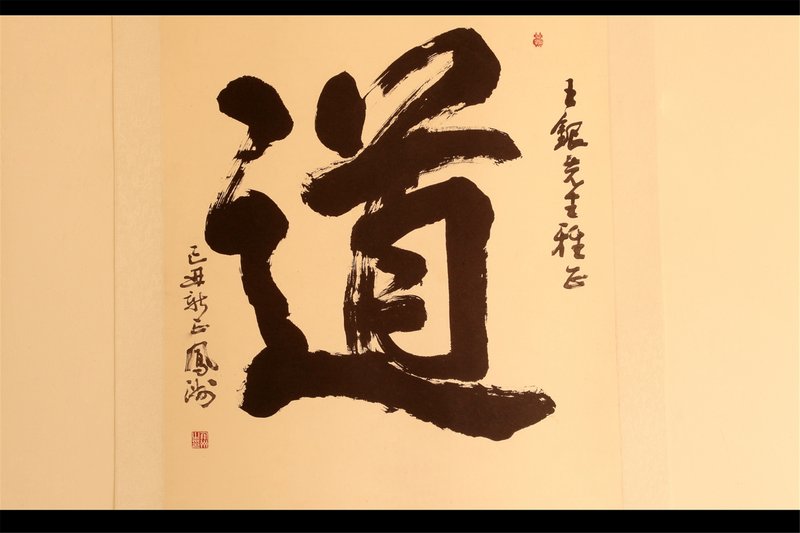 王銀先生雅正
道
己丑新正鳳洲